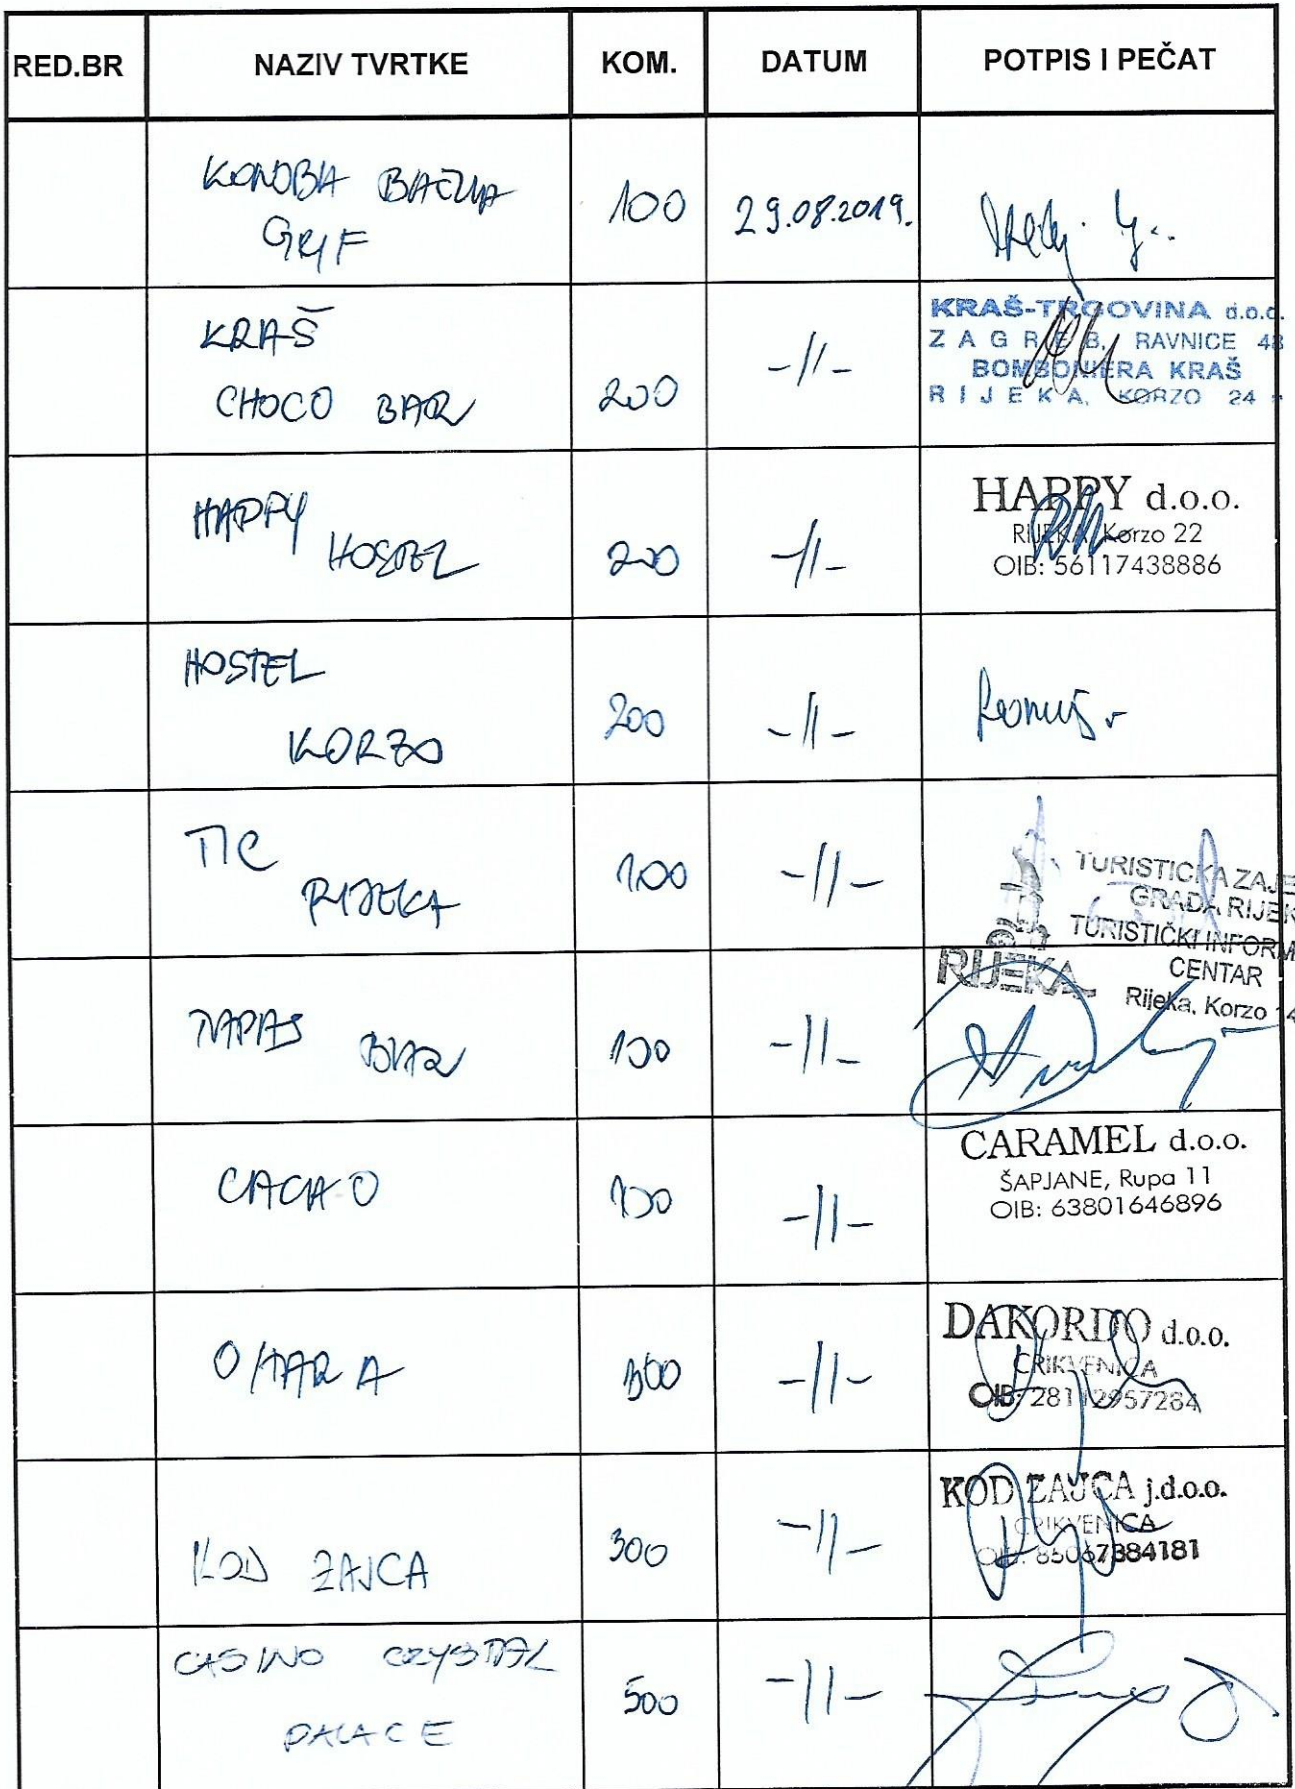 RED.BR NAZIV TVRTKE KOM. DATUM POTPIS I PEČAT
KONOBA BAČVA
GRIF
100 29.08.2019.
KRAŠ
CHOCO BAR
200 -//-
KRAŠ-TRGOVINA d.o.o.
ZAGREB, RAVNICE 48
BOMBONIERA KRAŠ
RIJEKA, KORZO 24
HAPPY
HOSTEL
200 -//-
HAPPY d.o.o.
RIJEKA, Korzo 22
OIB: 56117438886
HOSTEL
KORZO
200 -//-
TIC
RIJEKA
100 -//-
TURISTIČKA ZAJE
GRADA RIJEK
TURISTIČKI INFORM
CENTAR
Rijeka, Korzo 14
RIJEKA
TAPAS BAR
100 -//-
CACAO
100 -//-
CARAMEL d.o.o.
ŠAPJANE, Rupa 11
OIB: 63801646896
O'HARA
-//-
DAKORDO d.o.o.
CRIKVENICA
OIB: 28112957284
KOD ZAJCA
300 -//-
KOD ZAJCA j.d.o.o.
CRIKVENICA
OIB: 85067384181
CASINO CRYSTAL
PALACE
500 -//-